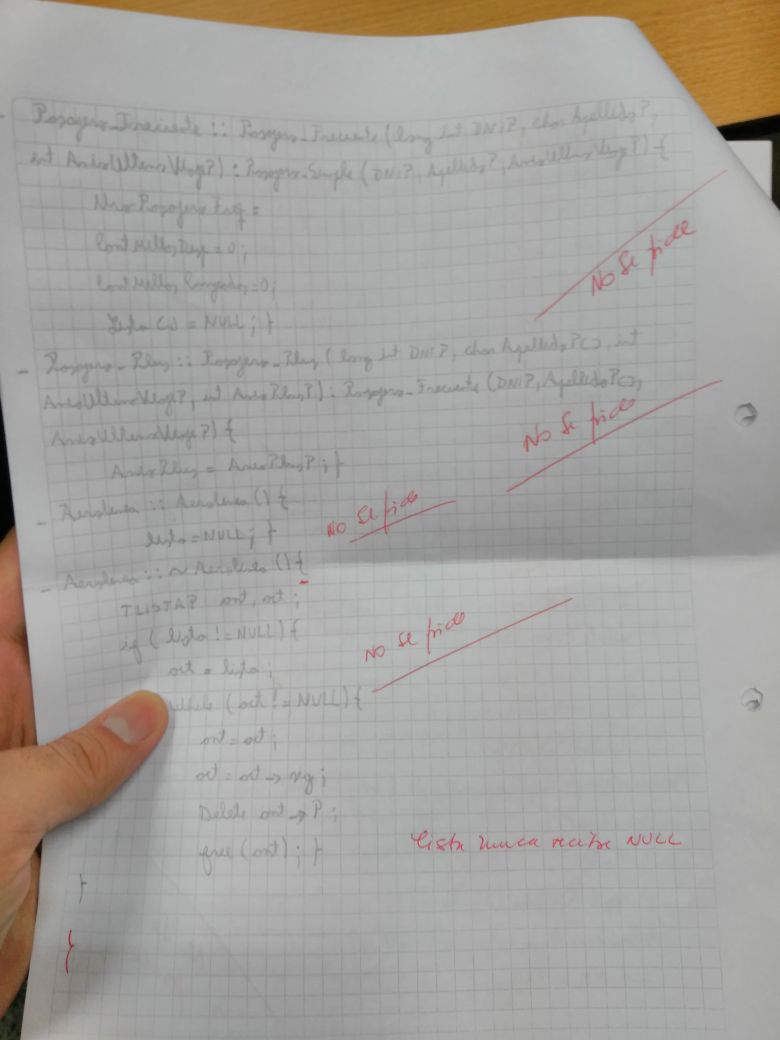 Pasajero_Frecuente :: Pasajero_Frecuente (long int DNIP, char ApellidoP,
int AnioUltimoViajeP) : Pasajero_Simple (DNIP, ApellidoP, AnioUltimoViajeP) {
NroPasajeroFrq =
No se pide
ContMillasDisp = 0;
ContMillas Canjeadas = 0;
Lista C = NULL; }
- Pasajero_Plus :: Pasajero_Plus (long int DNIP, char ApellidoP[], int
AnioUltimoViajeP, int AnioPlusP) : Pasajero_Frecuente (DNIP, ApellidoP[],
AnioUltimoViajeP) {
No se pide
AnioPlus = AnioPlusP; }
- Aerolinea :: Aerolinea () {
No se pide
lista = NULL; }
- Aerolinea :: ~ Aerolinea () {
TLISTAP ant, act;
if (lista != NULL) {
No se pide
act = lista;
while (act != NULL) {
ant = act;
act = act -> sig;
Delete ant -> P;
free (ant); }
lista nunca recibe NULL
}
}